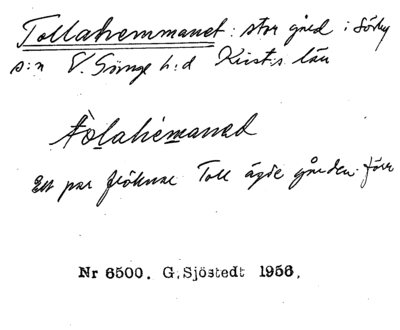 Tollahemmanet: stor gård i Sörby
s:n V. Göinge h:d Krist:s län
Tòlahemaned
Ett par fröknar Toll ägde gården förr
Nr 6500. G.Sjöstedt 1956.